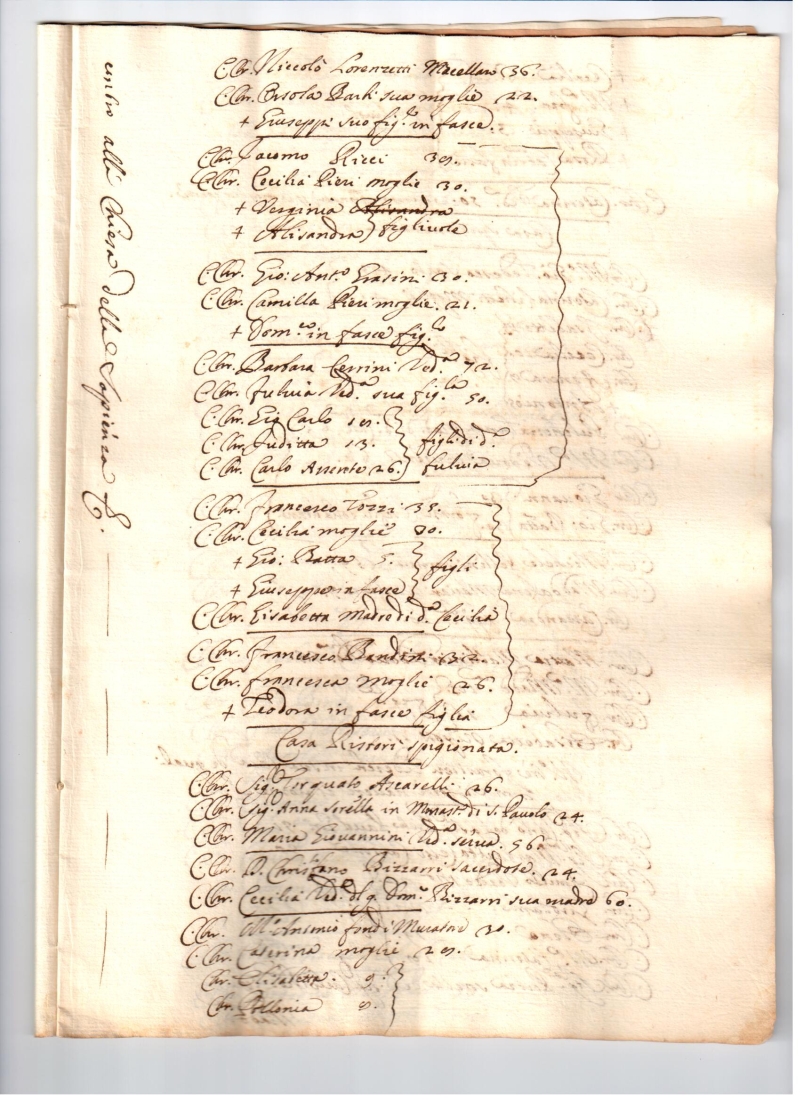 contro alla Chiesa della Sapienza &.
C. Chr. Niccolò Lorenzetti Macellaro 36.
C. Chr. Orsola Barli sua moglie 22.
+ Giuseppe suo fig.lo in fasce.
C. Chr. Jacomo Ricci 39.
C. Chr. Cecilia Pieri moglie 30.
+ Verginia Alisandra
+ Alisandra) figliuole
C. Chr. Gio: Ant.o Grasini 30.
C. Chr. Camilla Pieri moglie. 21.
+ Dom.co in fasce fig.lo
C. Chr. Barbara Cerrini Ved.a 72.
C. Chr. Fulvia Ved.a sua fig.la 50.
C. Chr. Gio Carlo 19.
C. Chr. Juditta 13. figli di d.a
C. Chr. Carlo 26.) fulvia
C. Chr. Francesco Tozzi 35.
C. Chr. Cecilia moglie 30.
+ Gio: Batta 5. figli
+ Giuseppe in fasce
C. Chr. Lisabetta Madre di d.a Cecilia
C. Chr. Francesco Bandini 32.
C. Chr. francesca moglie 26.
+ Teodora in fasce figlia
Casa Ristori spigionata.
C. Chr. Sig.r Torquato Ascarelli 26.
C. Chr. Sig.a Anna sorella in Monast.o di S. Pavolo 24.
C. Chr. Maria Giovannini Ved.a serva. 56
C. Chr. D. Christofano Bizzarri sacerdote. 24.
C. Chr. Cecilia Ved.a del q. Dom.co Bizzarri sua madre 60.
C. Chr. M.o Antonio fondi Muratore 30.
C. Chr. Caterina moglie 29.
Chr. Lisabetta. 9.
Chr. Pollonia 9.